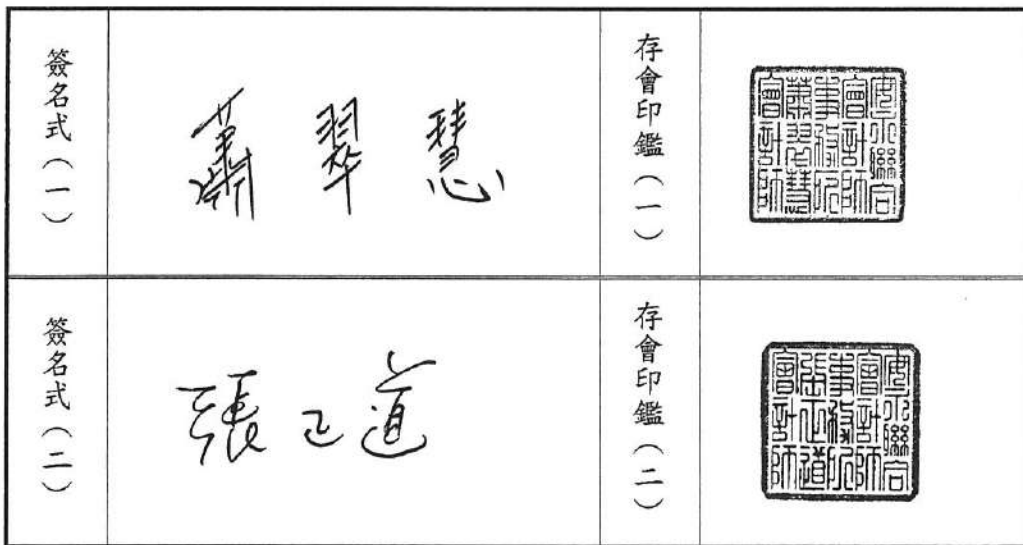 簽名式（一）
蕭翠慧
存會印鑑（一）
安永聯合
會計師
事務所
蕭翠慧
會計師
簽名式（二）
張正道
存會印鑑（二）
安永聯合
會計師
事務所
張正道
會計師